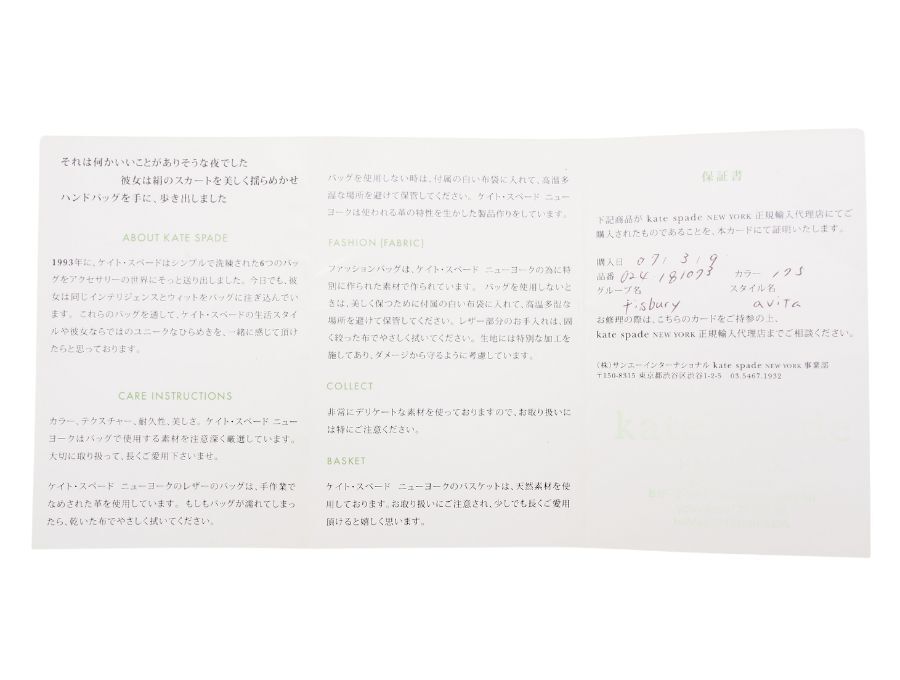 それは何かいいことがありそうな夜でした
彼女は絹のスカートを美しく揺らめかせ
ハンドバッグを手に、歩き出しました
ABOUT KATE SPADE
1993年に、ケイト・スペードはシンプルで洗練された6つのバッ
グをアクセサリーの世界にそっと送り出しました。今日でも、彼
女は同じインテリジェンスとウィットをバッグに注ぎ込んでい
ます。これらのバッグを通して、ケイト・スペードの生活スタイ
ルや彼女ならではのユニークなひらめきを、一緒に感じて頂け
たらと思っております。
CARE INSTRUCTIONS
カラー、テクスチャー、耐久性、美しさ。ケイト・スペード ニュー
ヨークはバッグで使用する素材を注意深く厳選しています。
大切に取り扱って、長くご愛用下さいませ。
ケイト・スペード ニューヨークのレザーのバッグは、手作業で
なめされた革を使用しています。もしもバッグが濡れてしまっ
たら、乾いた布でやさしく拭いてください。
バッグを使用しない時は、付属の白い布袋に入れて、高温多
湿な場所を避けて保管してください。ケイト・スペード ニュー
ヨークは使われる革の特性を生かした製品作りをしています。
FASHION [FABRIC]
ファッションバッグは、ケイト・スペード ニューヨークの為に特
別に作られた素材で作られています。バッグを使用しないと
きは、美しく保つために付属の白い布袋に入れて、高温多湿な
場所を避けて保管してください。レザー部分のお手入れは、固
く絞った布でやさしく拭いてください。生地には特別な加工を
施してあり、ダメージから守るように考慮しています。
COLLECT
非常にデリケートな素材を使っておりますので、お取り扱いに
は特にご注意ください。
BASKET
ケイト・スペード ニューヨークのバスケットは、天然素材を使
用しております。お取り扱いにご注意され、少しでも長くご愛用
頂けると嬉しく思います。
保証書
下記商品が kate spade NEW YORK 正規輸入代理店にてご
購入されたものであることを、本カードにて証明いたします。
購入日 071319
品番 024 181073 カラー 193
グループ名 スタイル名
tisbury avita
お修理の際は、こちらのカードをご持参の上、
kate spade NEW YORK 正規輸入代理店までご相談ください。
(株)サンエーインターナショナル kate spade NEW YORK 事業部
〒150-8315 東京都渋谷区渋谷1-2-5 03.5467.1932